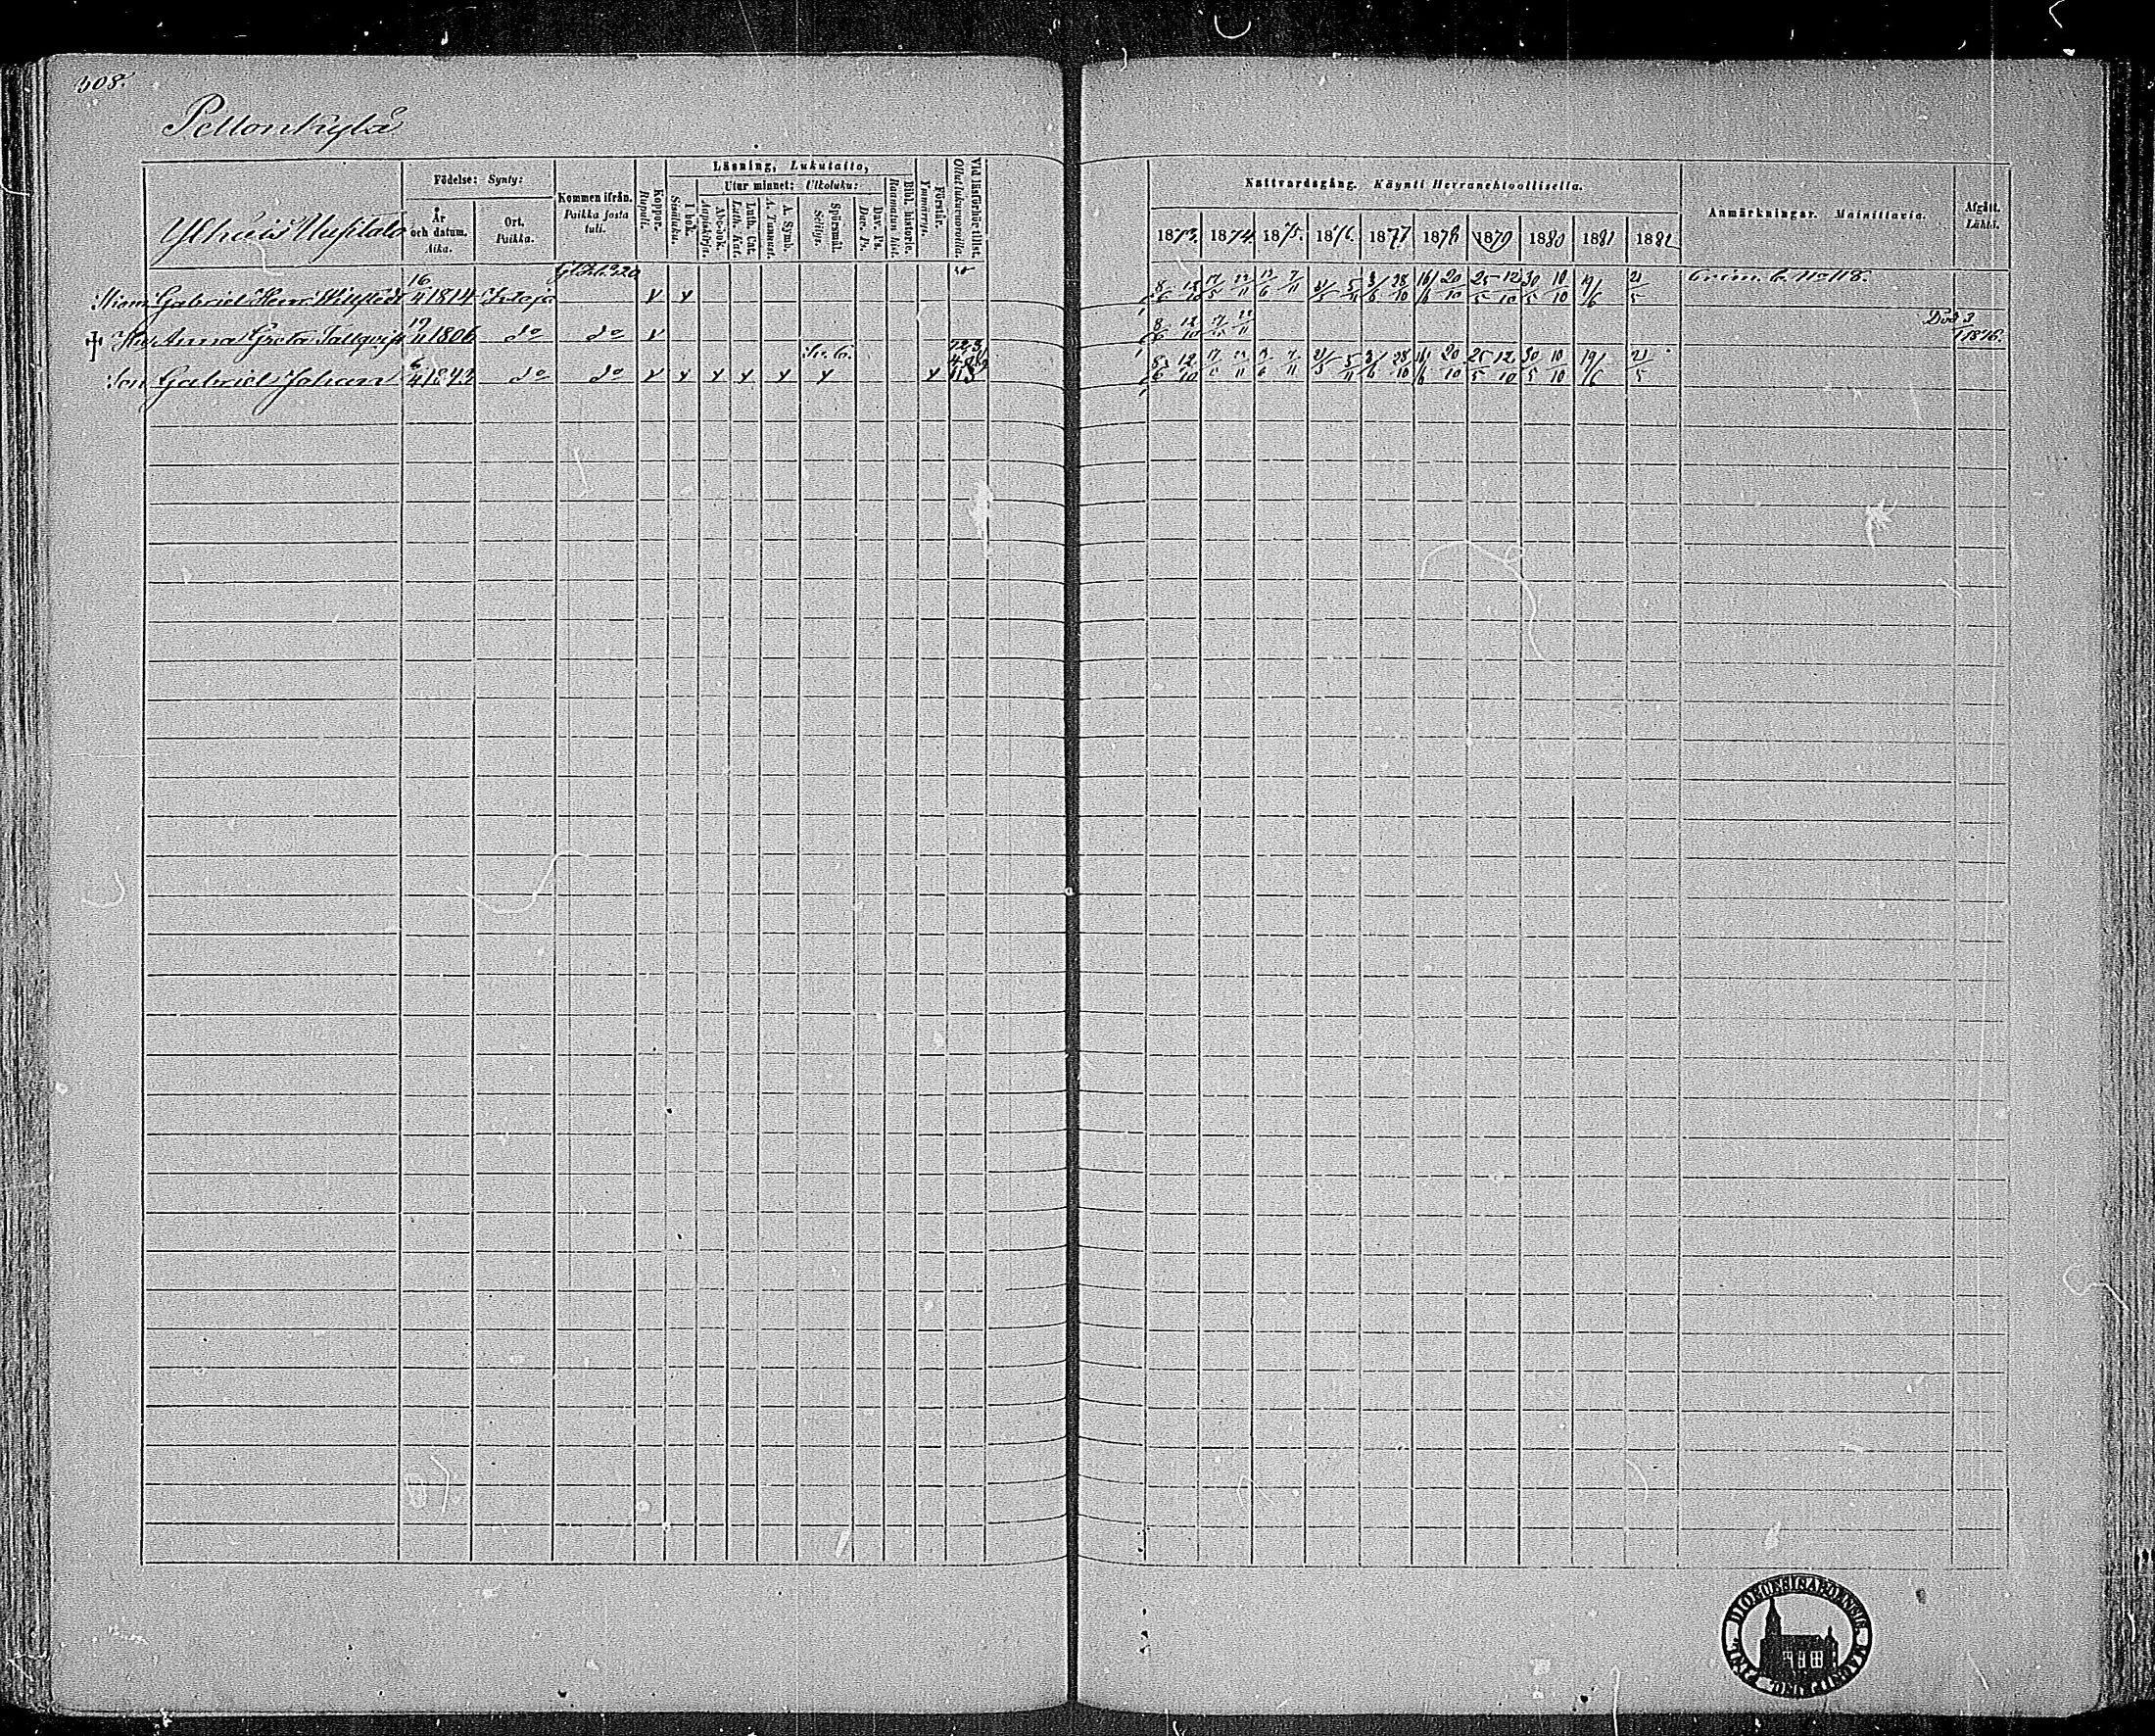 308.
Peltonkylä
Läsning, Lukutaito,
Födelse: Synty:
Utur minnet: Ulkoluku:
Kommen ifrån.
Paikka josta tuli.
Koppor. Rupuli.
I bok. Sisäluku.
Abc-bok. Aapiskirja.
Luth. Cat. Luth. Kat.
A. Symb. A. Tunnust.
Spörsmål. Selitys.
Dav. Ps. Dav. Ps.
Bibl. historie. Raamatun hist.
Förstår. Ymmärrys.
Vid läsförhör tillst. Ollut lukuvuoroilla.
År och datum. Aika.
Ort. Paikka.
Nattvardsgång. Käynti Herranehtoollisella.
Anmärkningar. Mainittavia.
Afgått. Lähtö.
1873. 1874. 1875. 1876. 1877 1878 1879 1880 1881 1882
Gabriel Henr 16/4 1814
8/6 12/10 17/5 22/11 13/6 7/11 21/5 5/11 3/6 28/10 16/6 20/10 25/5 12/10 30/5 10/10 19/6 21/5
† Anna Greta 19/4 1806 do do
8/6 12/10 17/5 22/11 Död 3/1 1876.
Son Gabriel Johan 6/4 1842 do do
8/6 12/10 17/5 22/11 13/6 7/11 21/5 5/11 3/6 28/10 16/6 20/10 25/5 12/10 30/5 10/10 19/6 21/5